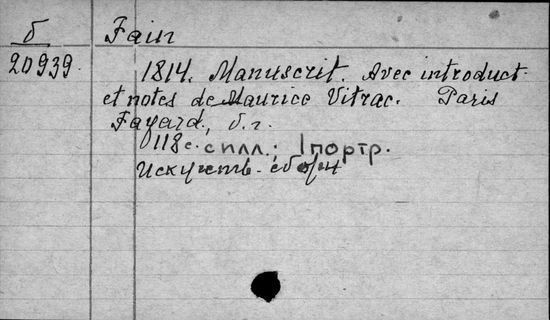 б
20939.
Fain
1814. Manuscrit. Avec introduct.
et notes de Maurice Vitrac. Paris
Fayard, б. г.
118 с. с илл.; 1 портр.